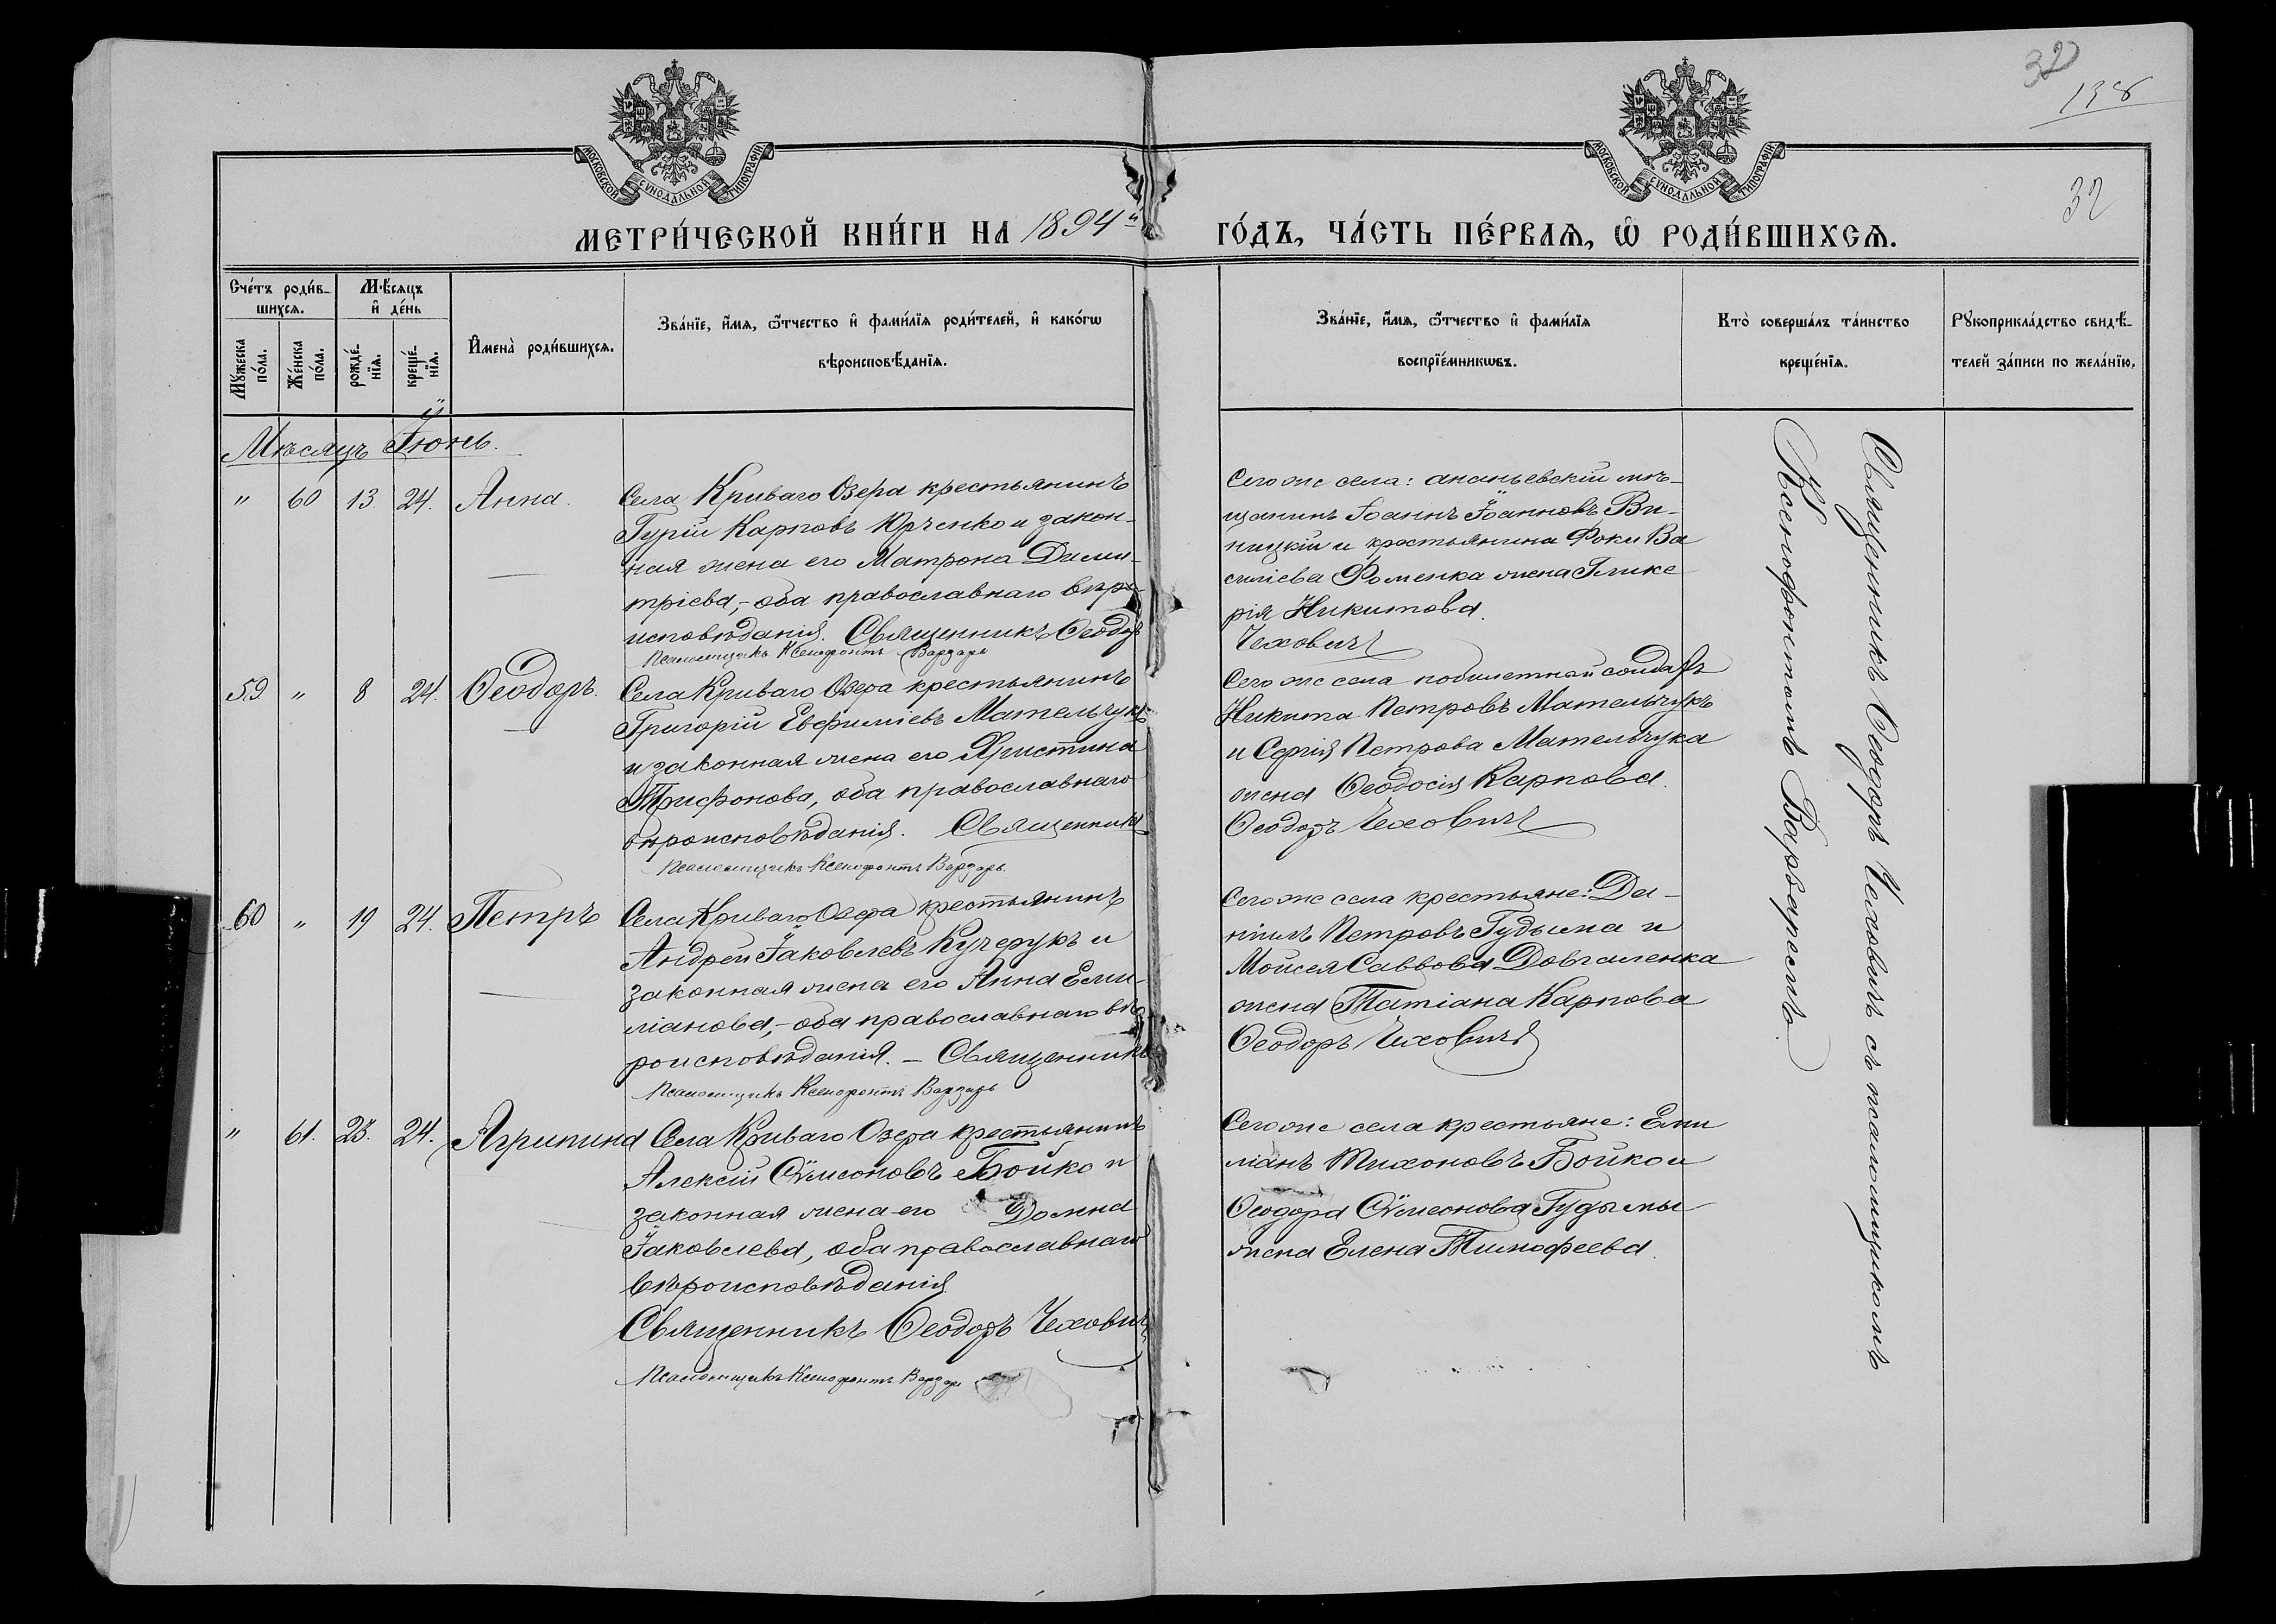 32
138
32
МОСКОВСКОЙ СѴНОДАЛЬНОЙ ТИПОГРАФІИ
МОСКОВСКОЙ СѴНОДАЛЬНОЙ ТИПОГРАФІИ
МЕТРИ́ЧЕСКОЙ КНИ́ГИ НА 1894й ГО́ДЪ, ЧА́СТЬ ПЕ́РВАѦ, Ѿ РОДИ́ВШИХСѦ.
Сче́тъ роди́в-
шихсѧ.
Мꙋжеска по́ла.
Же́нска по́ла.
Мѣ́сѧцъ
и҆ де́нь
рожде́-
нїѧ.
креще́-
нїѧ.
И҆мена̀ роди́вшихсѧ.
Зва́нїе, и҆́мѧ, ѻ҆́тчество и҆ фами́лїѧ роди́телей, и҆ како́гѡ
вѣроисповѣ́данїѧ.
Зва́нїе, и҆́мѧ, ѻ҆́тчество и҆ фами́лїѧ
воспрїе́мникѡвъ.
Кто̀ соверша́лъ та́инство
креще́нїѧ.
Рꙋкоприкла́дство свидѣ́-
телей за́писи по жела́нїю.
Мѣсяцъ Іюнь.
" 60 13 24. Анна.
Села Криваго Озера крестьянинъ
Гурій Карповъ Юрченко и закон-
ная жена его Матрона Дими-
тріева,- оба православнаго вѣро-
исповѣданія. Священникъ Ѳеодоръ
Псаломщикъ Ксенофонтъ Варзарь
Сего же села: ананьевскій мѣ-
щанинъ Іоаннъ Іоанновъ Ви-
ницкій и крестьянина Фоки Ва
силіева Фоменка жена Глике
рія Никитова.
Чеховичъ
59 " 8 24. Ѳеодоръ.
Села Криваго Озера крестьянинъ
Григорій Евфиміевъ Мательчукъ
и законная жена его Христина
Трифонова, оба православнаго
вѣроисповѣданія. Священникъ
Псаломщикъ Ксенофонтъ Варзарь.
Сего же села побилетный солдатъ
Никита Петровъ Мательчукъ
и Сергія Петрова Мательчука
жена Ѳеодосія Карпова.
Ѳеодоръ Чеховичъ
60 " 19 24. Петръ
Села Криваго Озера крестьянинъ
Андрей Іаковлевъ Кучерукъ и
законная жена его Анна Еми-
ліанова,- оба православнаго вѣ
роисповѣданія. - Священникъ
Псаломщикъ Ксенофонтъ Варзарь
Сего же села крестьяне: Да-
ніилъ Петровъ Гудыма и
Моисея Саввова Довгаленка
жена Татіана Карпова
Ѳеодоръ Чеховичъ
" 61. 23. 24. Агрипина
Села Криваго Озера крестьянинъ
Алексій Сѵмеоновъ Бойко и
законная жена его Домна
Іаковлева, оба православнаго
вѣроисповѣданія
Священникъ Ѳеодоръ Чеховичъ
Псаломщикъ Ксенофонтъ Варзарь
Сего же села крестьяне: Еми
ліанъ Тихоновъ Бойко и
Ѳеодора Сѵмеонова Гудымы
жена Елена Тимофеева.
Священникъ Ѳеодоръ Чеховичъ съ псаломщикомъ
Ксенофонтомъ Варзаремъ.